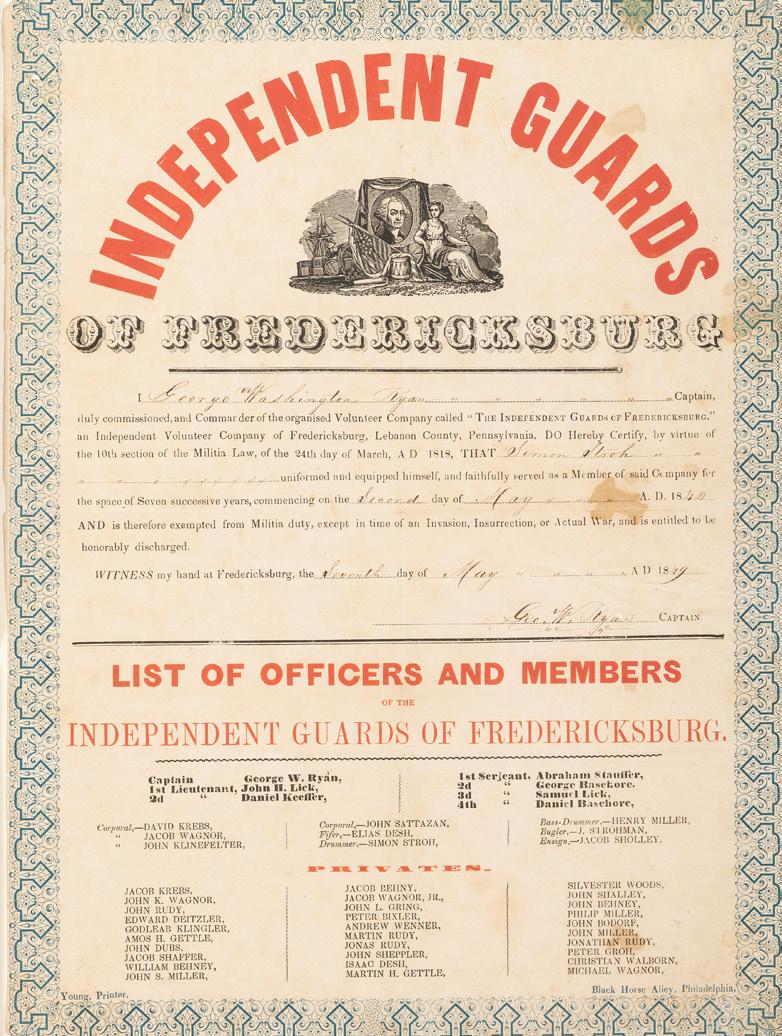 INDEPENDENT GUARDS
OF FREDERICKSBURG
I George Washington Ryan " " " " " " Captain,
duly commissioned, and Commander of the organised Volunteer Company called "THE INDEPENDENT GUARDS OF FREDERICKSBURG."
an Independent Volunteer Company of Fredericksburg, Lebanon County, Pennsylvania, DO Hereby Certify, by virtue of
the 10th section of the Militia Law, of the 24th day of March, A D 1818, THAT Simon Stroh " "
uniformed and equipped himself, and faithfully served as a Member of said Company for
the space of Seven successive years, commencing on the Second day of May A. D. 18
AND is therefore exempted from Militia duty, except in time of an Invasion, Insurrection, or Actual War, and is entitled to be
honorably discharged.
WITNESS my hand at Fredericksburg, the Seventh day of May " " " " A D 1849
Geo. W. Ryan CAPTAIN.
LIST OF OFFICERS AND MEMBERS
OF THE
INDEPENDENT GUARDS OF FREDERICKSBURG.
Captain George W. Ryan,
1st Lieutenant, John H. Lick,
2d " Daniel Keeffer,
1st Serjeant, Abraham Stauffer,
2d " George Baschore.
3d " Samuel Lick,
4th " Daniel Baschore,
Corporal,—DAVID KREBS,
" JACOB WAGNOR,
" JOHN KLINEFELTER,
Corporal,—JOHN SATTAZAN,
Fifer,—ELIAS DESH,
Drummer,—SIMON STROH,
Bass-Drummer,—HENRY MILLER,
Bugler,—J. STROHMAN,
Ensign,—JACOB SHOLLEY.
PRIVATES.
JACOB KREBS.
JOHN K. WAGNOR,
JOHN RUDY,
EDWARD DEITZLER,
GODLEAB KLINGLER,
AMOS H. GETTLE,
JOHN DUBS.
JACOB SHAFFER,
WILLIAM BEHNEY,
JOHN S. MILLER,
JACOB BEHNY,
JACOB WAGNOR, JR.,
JOHN L. GRING,
PETER BIXLER,
ANDREW WENNER,
MARTIN RUDY,
JONAS RUDY,
JOHN SHEPPLER,
ISAAC DESH,
MARTIN H. GETTLE,
SILVESTER WOODS,
JOHN SHALLEY,
JOHN BEHNEY,
PHILIP MILLER,
JOHN BODORF,
JOHN MILLER,
JONATHAN RUDY,
PETER GROH,
CHRISTIAN WALBORN,
MICHAEL WAGNOR,
Young, Printer,
Black Horse Alley, Philadelphia,